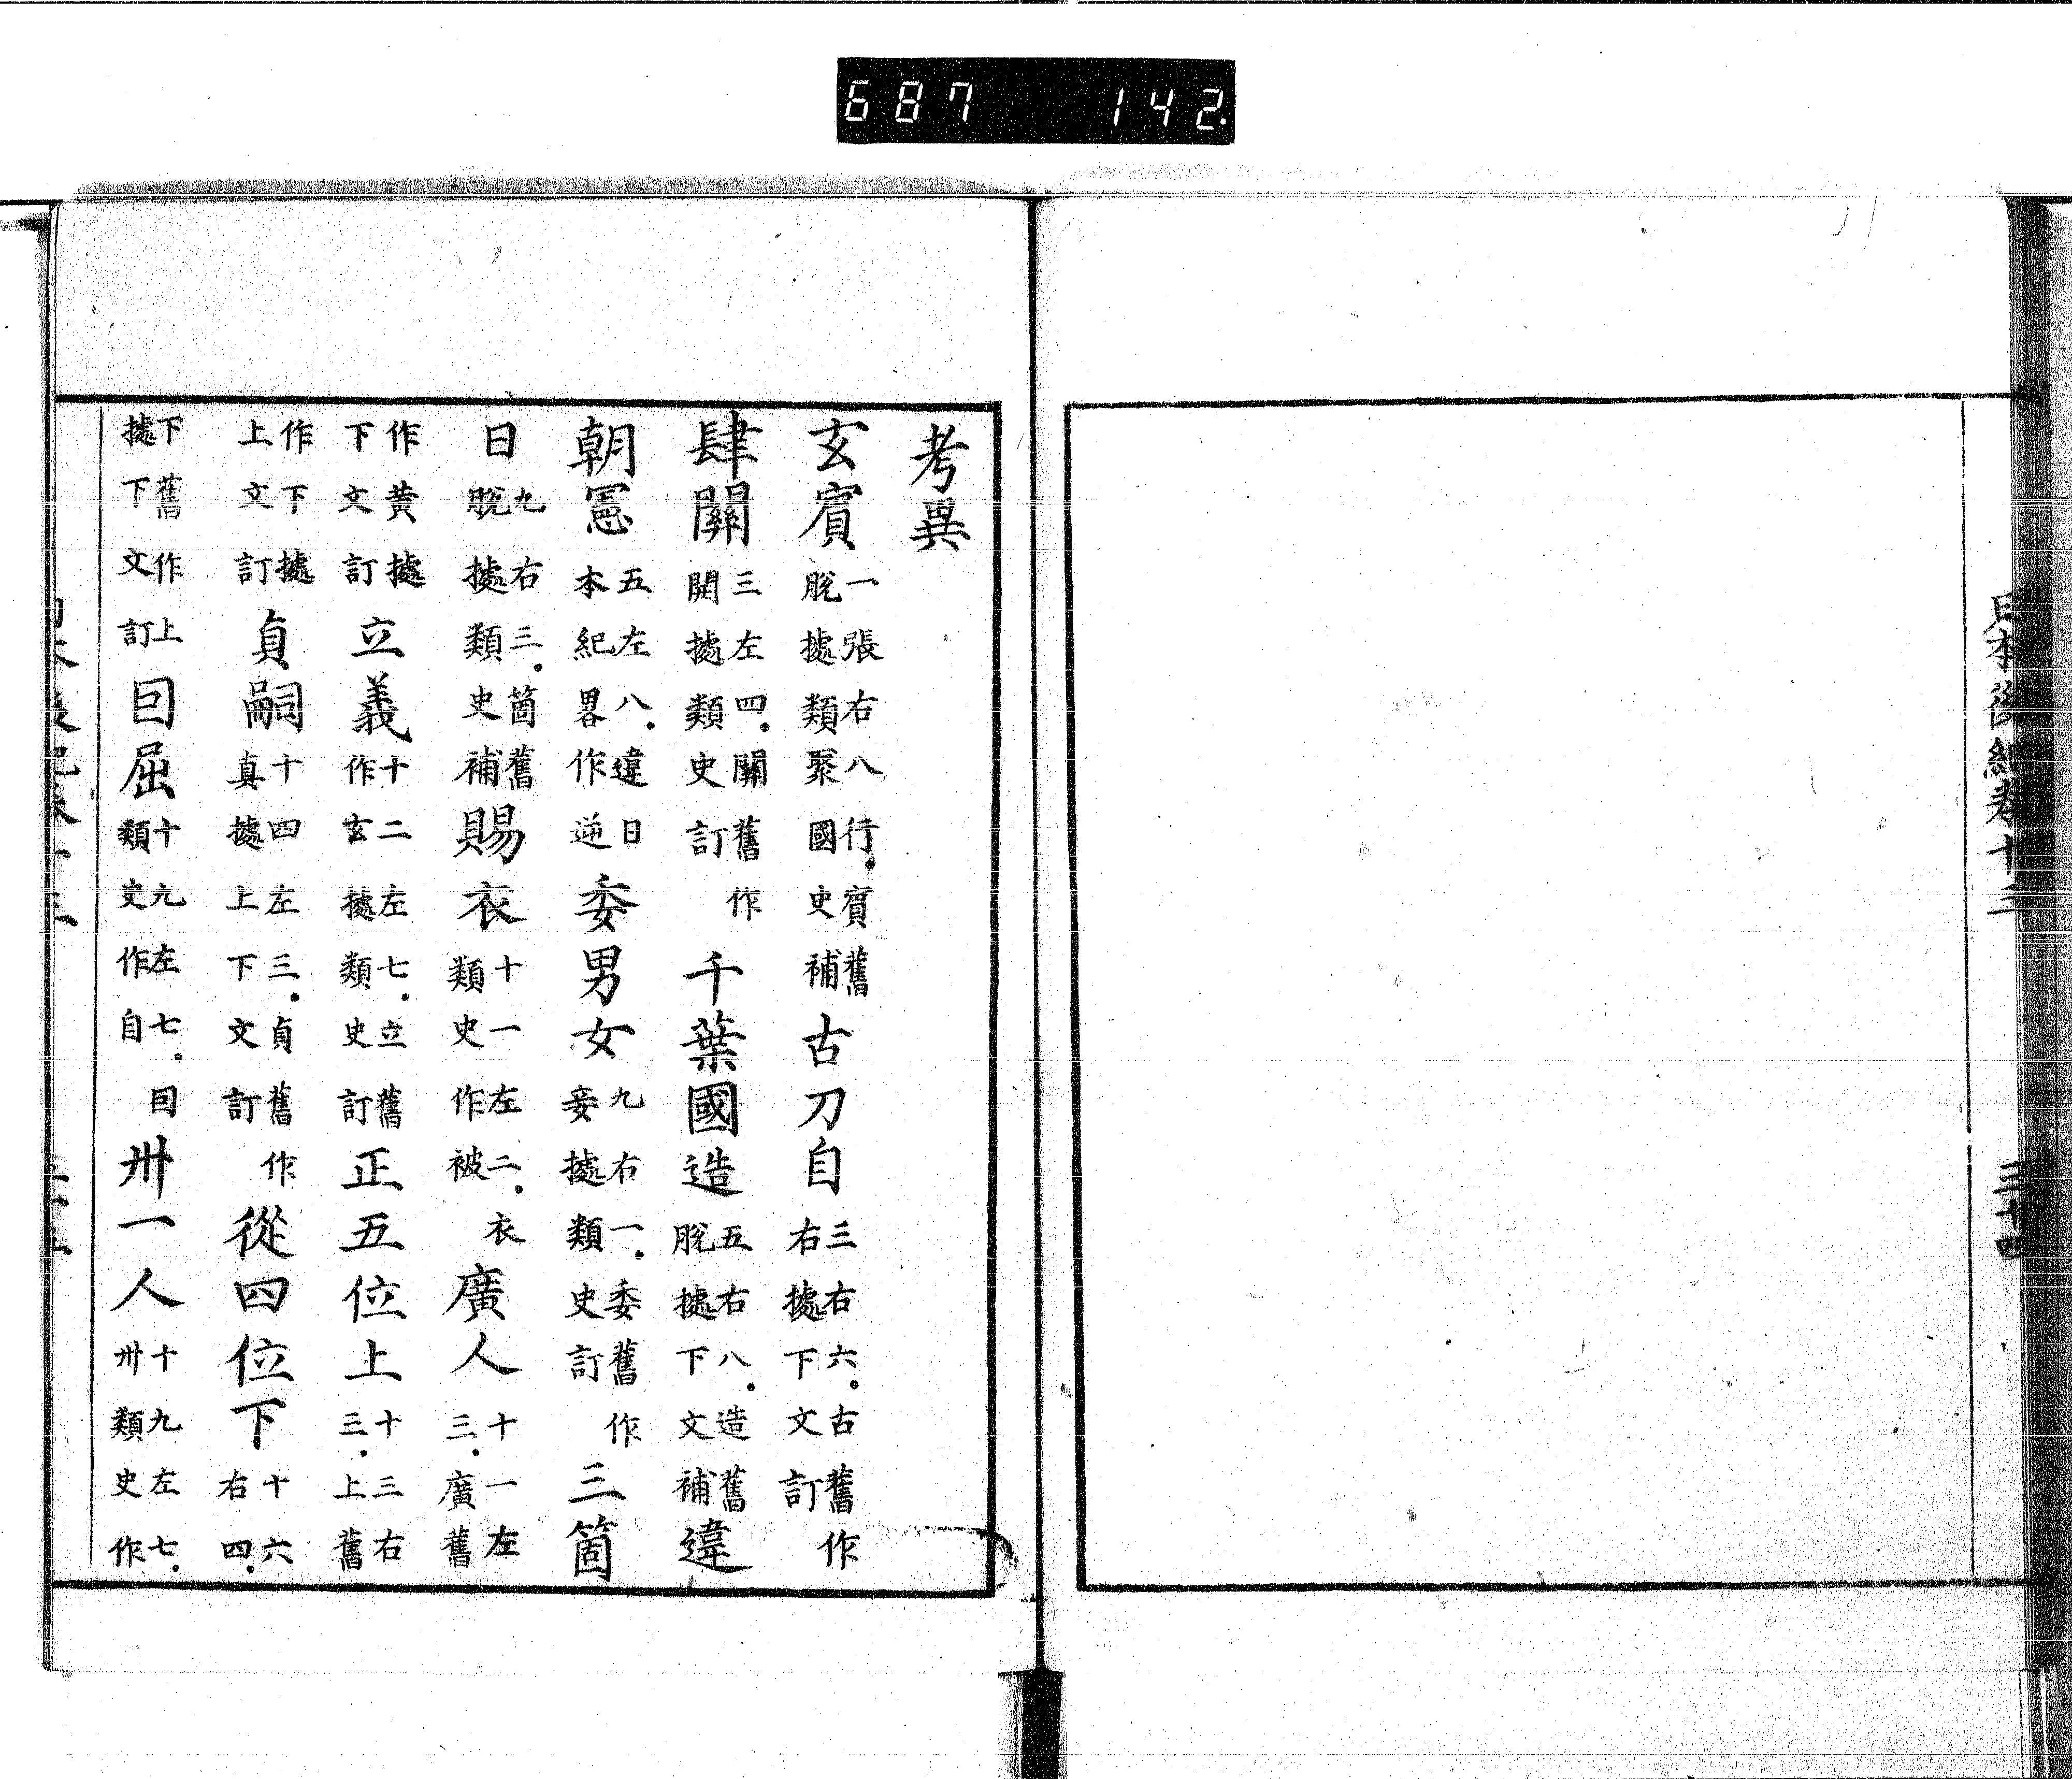 687 142
日本後紀卷十三 三十四
考異
玄賓一張右八行.賓舊脫據類聚國史補古刀自三右六.古舊作右據下文訂
肆關三左四.關舊作開據類史訂千葉國造五右八.造舊脫據下文補違
朝憲五左八.違日本紀畧作逆委男女九右一.委舊作妾據類史訂三箇
日九右三.箇舊脫據類史補賜衣十一左二.衣類史作被廣人十一左三.廣舊
作黄據下文訂立義十二左七.立舊作玄據類史訂正五位上十三右三.上舊
作下據上文訂貞嗣十四左三.貞舊作真據上下文訂從四位下十六右四.
下舊作上據下文訂囙屈十九左七.囙類史作自卅一人十九左七.卅類史作